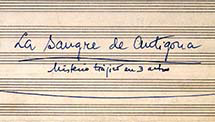 La Sangre de Antígona
Misterio trágico en 3 actos